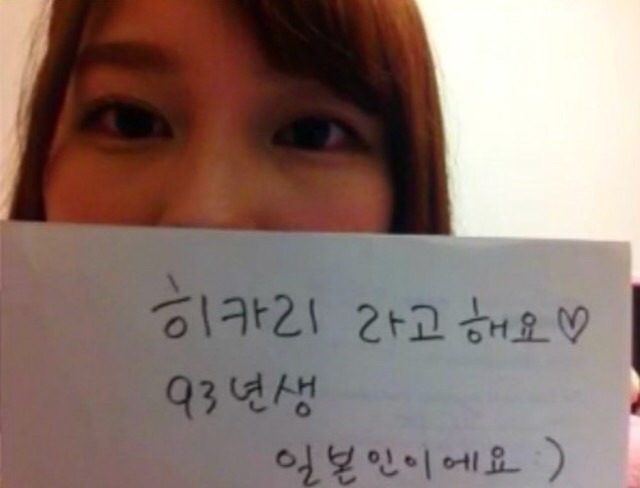 히카리 라고 해요♡
93년생
일본인이에요:)